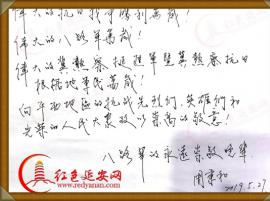 伟大的抗日战争胜利万岁！
伟大的八路军万岁！
伟大的冀热察挺进军暨冀热察抗日
根据地军民万岁！
向平西地区的抗战先烈们、英雄们和
光荣的人民大众致以崇高的敬意！
八路军的永远崇敬晚辈
周秉和
2019.5.27
红色延安网
www.redyanan.com